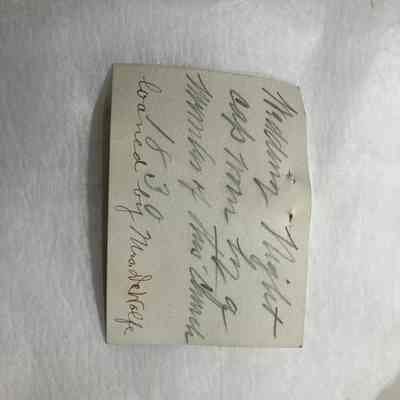 Wedding Night
cap worn by a
Member of this church
1830
loaned by Mrs DeWolfe